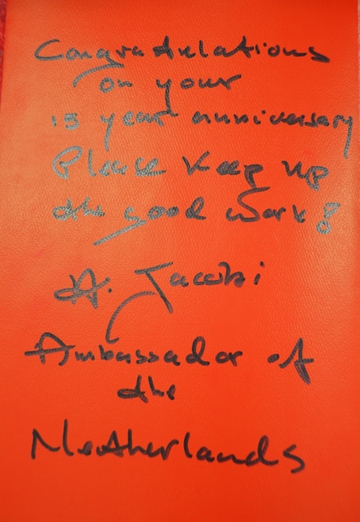 Congratulations
on your
15 year anniversary
Please keep up
the good work!
A. Jacobi
Ambassador of
the
Netherlands